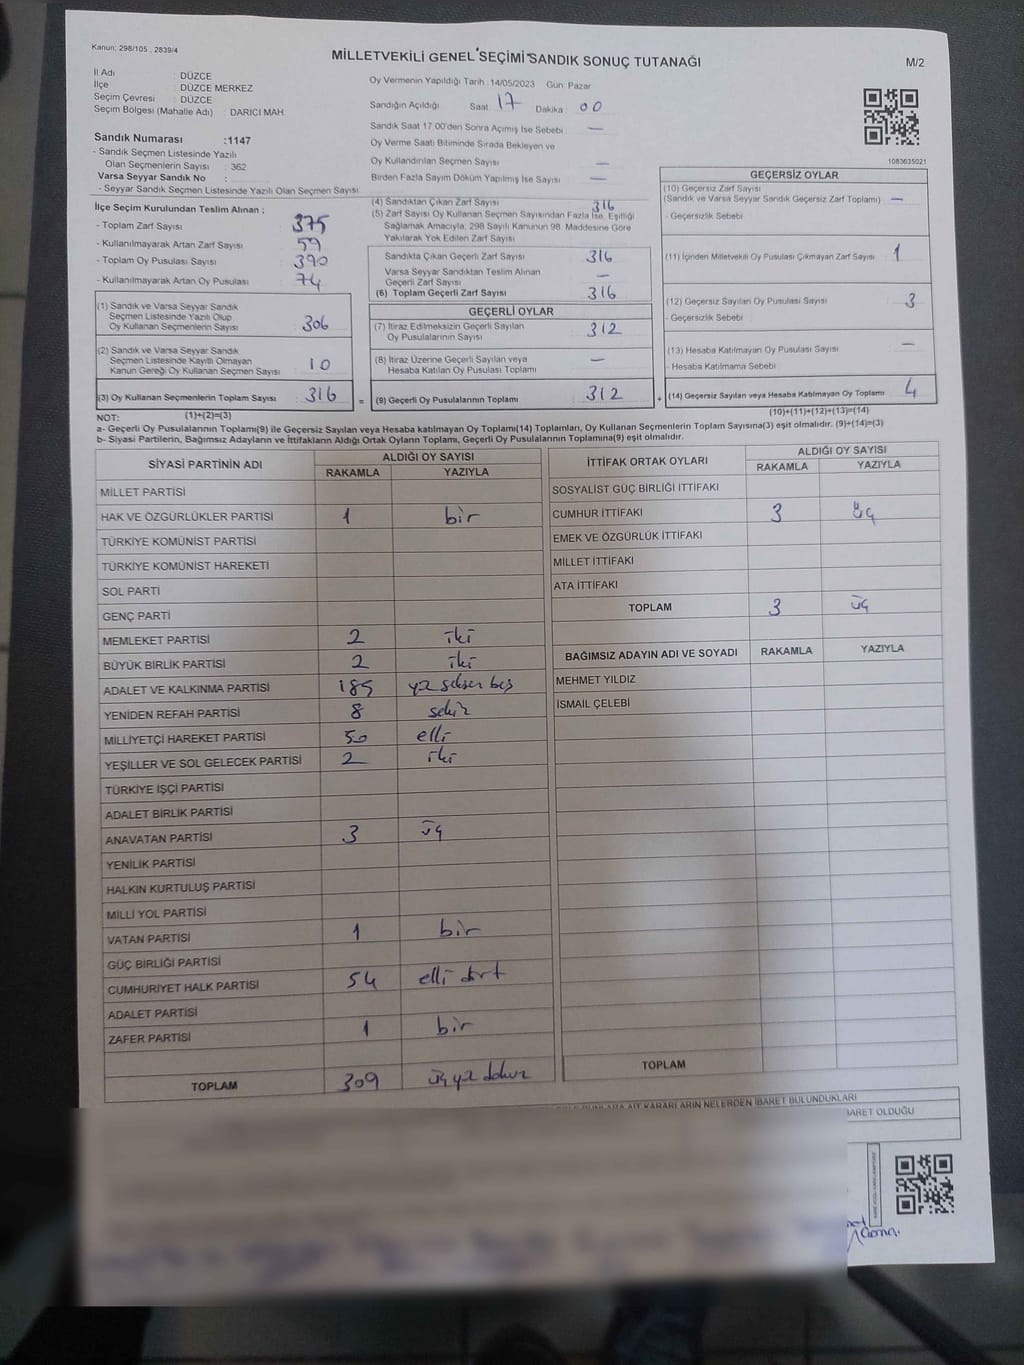 Kanun; 298/105 , 2839/4
MİLLETVEKİLİ GENEL SEÇİMİ SANDIK SONUÇ TUTANAĞI
M/2
İl Adı : DÜZCE
İlçe : DÜZCE MERKEZ
Seçim Çevresi : DÜZCE
Seçim Bölgesi (Mahalle Adı) : DARICI MAH.
Sandık Numarası : 1147
- Sandık Seçmen Listesinde Yazılı
Olan Seçmenlerin Sayısı : 362
Varsa Seyyar Sandık No :
- Seyyar Sandık Seçmen Listesinde Yazılı Olan Seçmen Sayısı
Oy Vermenin Yapıldığı Tarih :14/05/2023 Gün: Pazar
Sandığın Açıldığı Saat 17 Dakika : 00
Sandık Saat 17:00'den Sonra Açımış İse Sebebi —
Oy Verme Saati Bitiminde Sırada Bekleyen ve
Oy Kullandırılan Seçmen Sayısı —
Birden Fazla Sayım Döküm Yapılmış İse Sayısı —
1083635021
İlçe Seçim Kurulundan Teslim Alınan ;
- Toplam Zarf Sayısı : 375
- Kullanılmayarak Artan Zarf Sayısı : 59
- Toplam Oy Pusulası Sayısı : 390
- Kullanılmayarak Artan Oy Pusulası : 74
(1) Sandık ve Varsa Seyyar Sandık
Seçmen Listesinde Yazılı Olup
Oy Kullanan Seçmenlerin Sayısı : 306
(2) Sandık ve Varsa Seyyar Sandık
Seçmen Listesinde Kayıtlı Olmayan
Kanun Gereği Oy Kullanan Seçmen Sayısı : 10
(3) Oy Kullanan Seçmenlerin Toplam Sayısı : 316 =
(4) Sandıktan Çıkan Zarf Sayısı 316
(5) Zarf Sayısı Oy Kullanan Seçmen Sayısından Fazla İse, Eşitliği
Sağlamak Amacıyla, 298 Sayılı Kanunun 98. Maddesine Göre
Yakılarak Yok Edilen Zarf Sayısı
Sandıkta Çıkan Geçerli Zarf Sayısı : 316
Varsa Seyyar Sandıktan Teslim Alınan
Geçerli Zarf Sayısı : —
(6) Toplam Geçerli Zarf Sayısı : 316
GEÇERLİ OYLAR
(7) İtiraz Edilmeksizin Geçerli Sayılan
Oy Pusulalarının Sayısı : 312
(8) İtiraz Üzerine Geçerli Sayılan veya
Hesaba Katılan Oy Pusulası Toplamı : —
(9) Geçerli Oy Pusulalarının Toplamı : 312 +
GEÇERSİZ OYLAR
(10) Geçersiz Zarf Sayısı
(Sandık ve Varsa Seyyar Sandık Geçersiz Zarf Toplamı) —
- Geçersizlik Sebebi
(11) İçinden Milletvekili Oy Pusulası Çıkmayan Zarf Sayısı : 1
(12) Geçersiz Sayılan Oy Pusulası Sayısı : 3
- Geçersizlik Sebebi
(13) Hesaba Katılmayan Oy Pusulası Sayısı : —
- Hesaba Katılmama Sebebi
(14) Geçersiz Sayılan veya Hesaba Katılmayan Oy Toplamı : 4
NOT: (1)+(2)=(3) (10)+(11)+(12)+(13)=(14)
a- Geçerli Oy Pusulalarının Toplamı(9) ile Geçersiz Sayılan veya Hesaba katılmayan Oy Toplamı(14) Toplamları, Oy Kullanan Seçmenlerin Toplam Sayısına(3) eşit olmalıdır. (9)+(14)=(3)
b- Siyasi Partilerin, Bağımsız Adayların ve İttifakların Aldığı Ortak Oyların Toplamı, Geçerli Oy Pusulalarının Toplamına(9) eşit olmalıdır.
SİYASİ PARTİNİN ADI ALDIĞI OY SAYISI
RAKAMLA YAZIYLA
MİLLET PARTİSİ
HAK VE ÖZGÜRLÜKLER PARTİSİ 1 bir
TÜRKİYE KOMÜNİST PARTİSİ
TÜRKİYE KOMÜNİST HAREKETİ
SOL PARTİ
GENÇ PARTİ
MEMLEKET PARTİSİ 2 iki
BÜYÜK BİRLİK PARTİSİ 2 iki
ADALET VE KALKINMA PARTİSİ 185 yüz seksen beş
YENİDEN REFAH PARTİSİ 8 sekiz
MİLLİYETÇİ HAREKET PARTİSİ 50 elli
YEŞİLLER VE SOL GELECEK PARTİSİ 2 iki
TÜRKİYE İŞÇİ PARTİSİ
ADALET BİRLİK PARTİSİ
ANAVATAN PARTİSİ 3 üç
YENİLİK PARTİSİ
HALKIN KURTULUŞ PARTİSİ
MİLLİ YOL PARTİSİ
VATAN PARTİSİ 1 bir
GÜÇ BİRLİĞİ PARTİSİ
CUMHURİYET HALK PARTİSİ 54 elli dört
ADALET PARTİSİ
ZAFER PARTİSİ 1 bir
TOPLAM 309 üç yüz dokuz
İTTİFAK ORTAK OYLARI ALDIĞI OY SAYISI
RAKAMLA YAZIYLA
SOSYALİST GÜÇ BİRLİĞİ İTTİFAKI
CUMHUR İTTİFAKI 3 üç
EMEK VE ÖZGÜRLÜK İTTİFAKI
MİLLET İTTİFAKI
ATA İTTİFAKI
TOPLAM 3 üç
BAĞIMSIZ ADAYIN ADI VE SOYADI RAKAMLA YAZIYLA
MEHMET YILDIZ
İSMAİL ÇELEBİ
TOPLAM
KARARLARIN NELERDEN İBARET BULUNDUKLARI
İBARET OLDUĞU